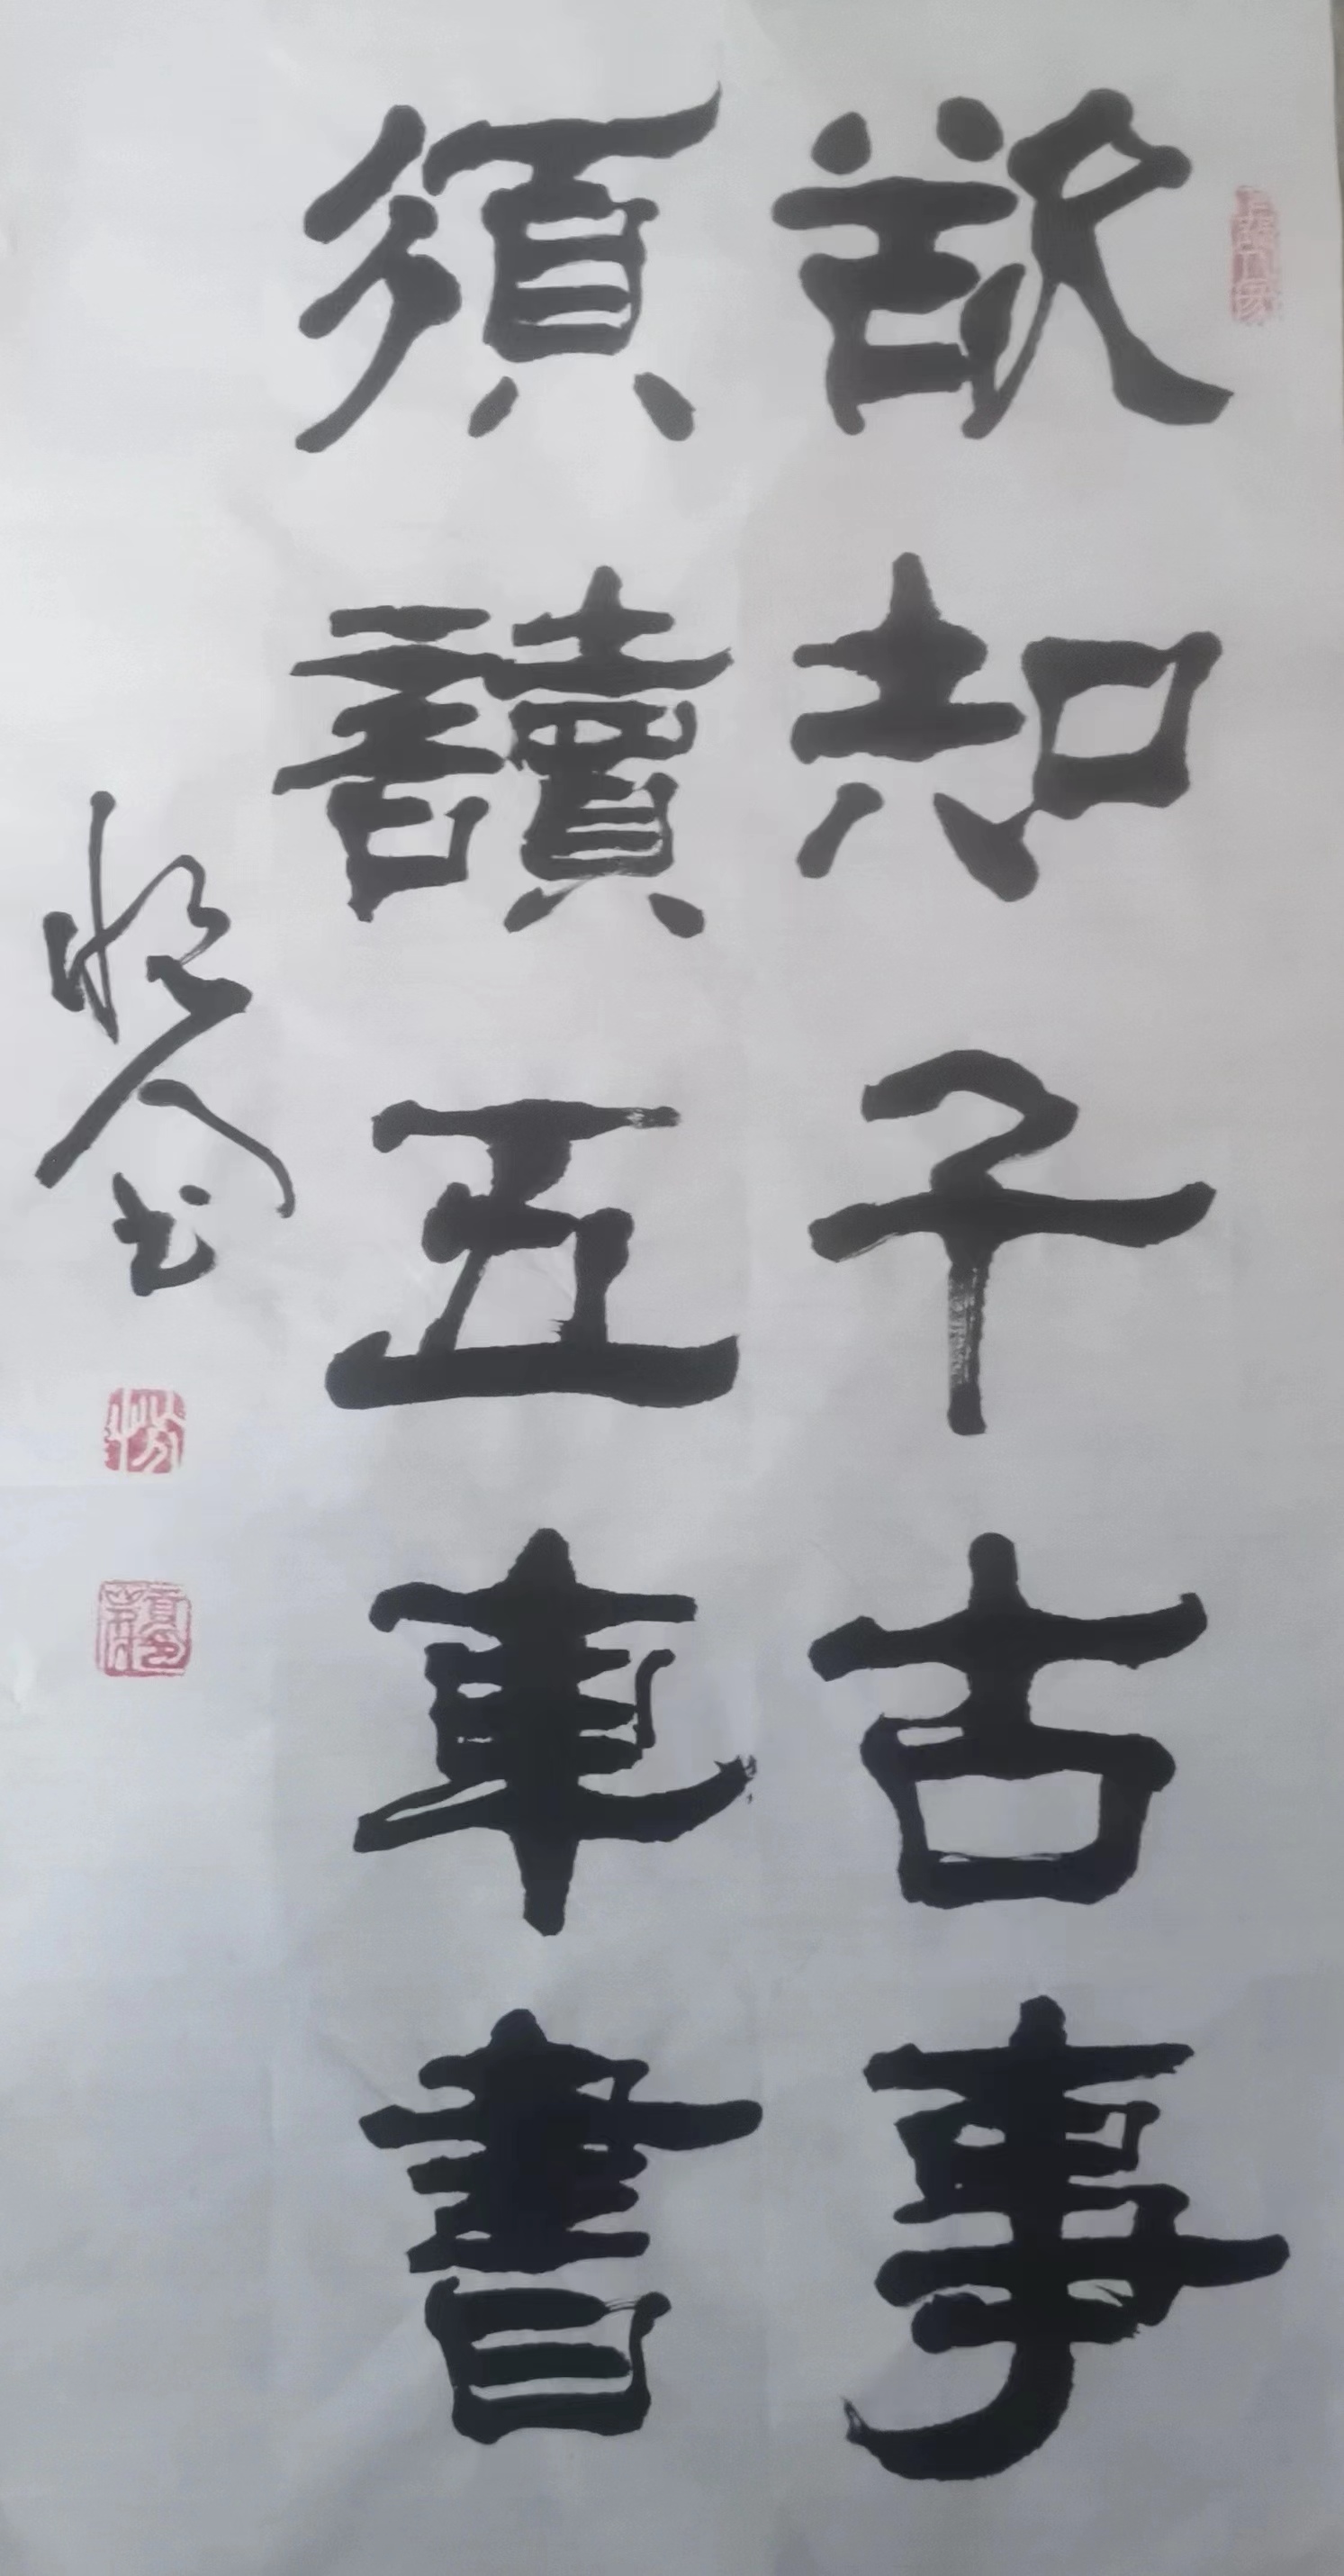 欲知千古事
須讀五車書